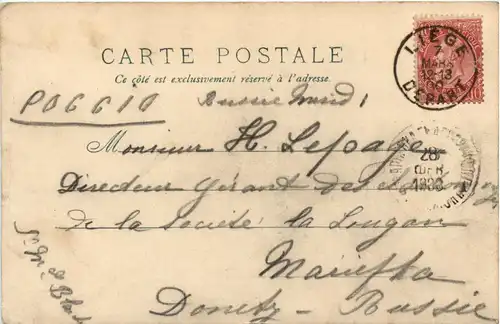 CARTE POSTALE
Ce côté est exclusivement réservé à l'adresse.
LIÉGE
7
MARS
12-13
DÉPART
POGGIO
Russie
Monsieur H. Lepage
Directeur Gérant des
de la Société la Lougan
Mariefka
Donetz - Russie
28
ФЕВ